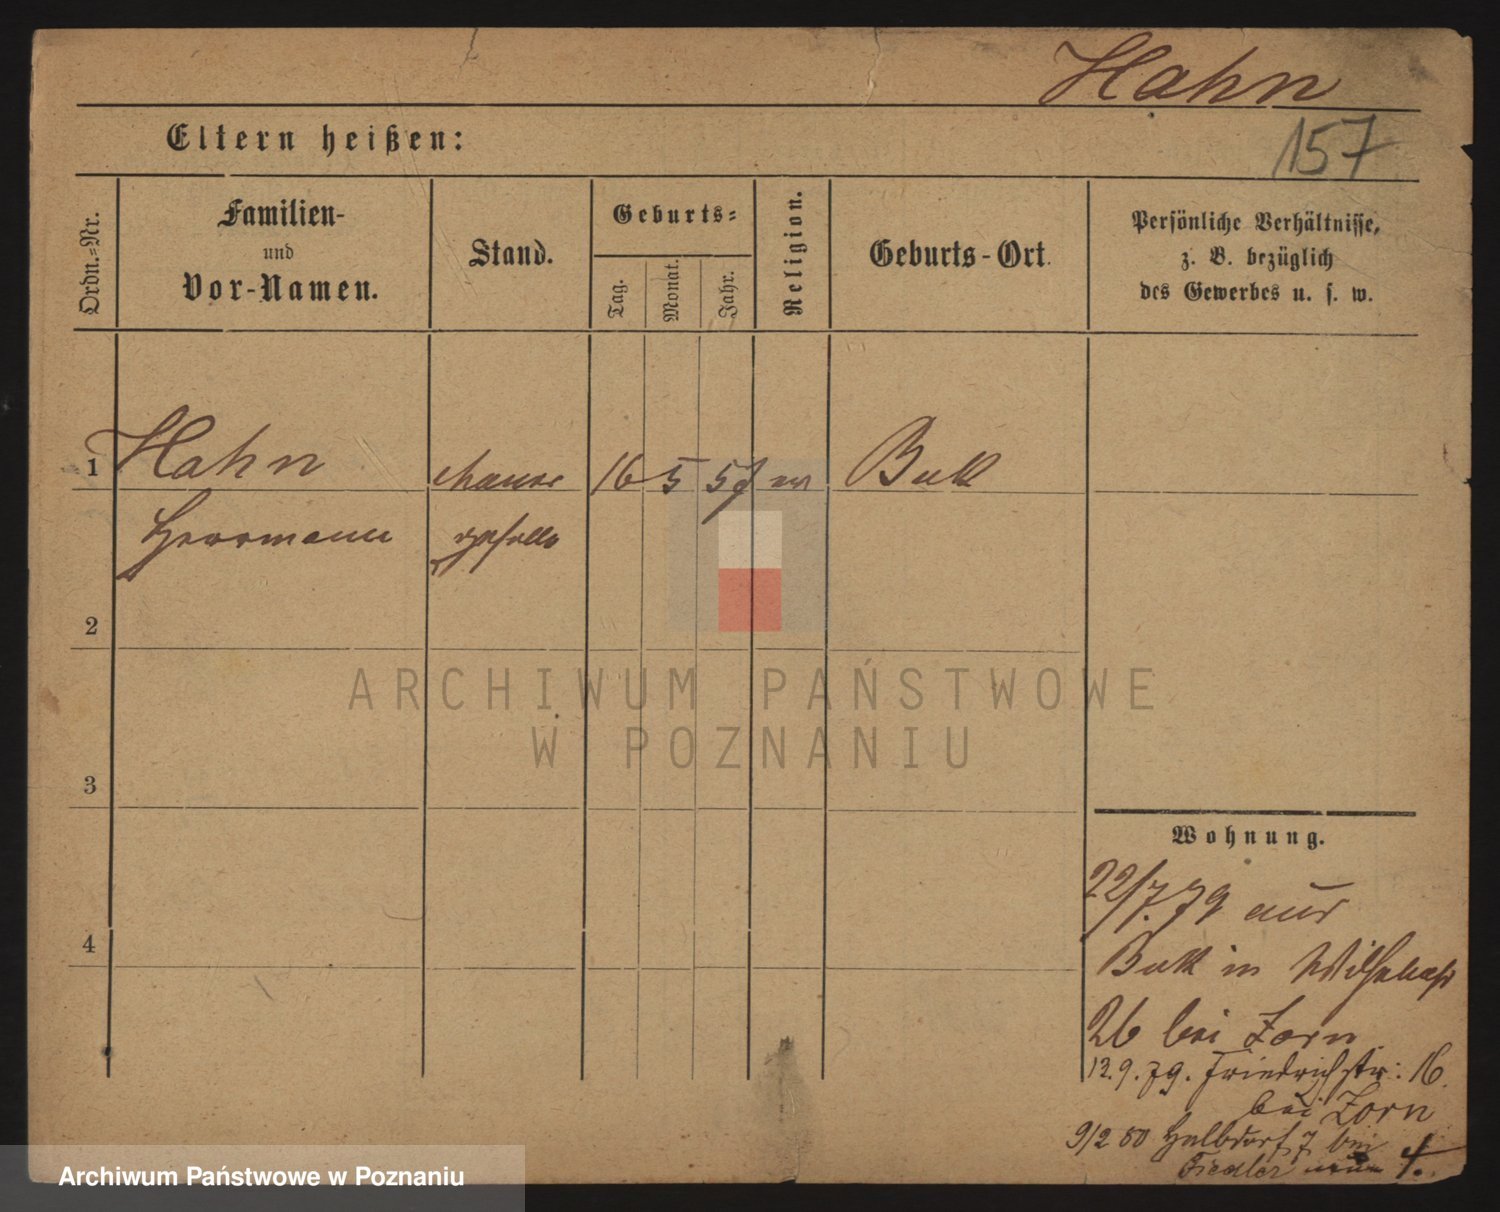 Hahn
157
Eltern heißen:
Ordn.-Nr.
Familien-
und
Vor-Namen.
Stand.
Geburts-
Tag.
Monat.
Jahr.
Religion.
Geburts-Ort.
Persönliche Verhältnisse,
z. B. bezüglich
des Gewerbes u. s. w.
1 Hahn Maurer 16 5 57 Buk
Herrmann geselle
2
3
4
Wohnung.
22/7. 79 aus
Buk in
26 bei Zorn
12. 9. 79. Friedrichstr: 16.
bei Zorn
9/2 80 Halbdorf 7 bei
Fiedler
ARCHIWUM PAŃSTWOWE
W POZNANIU
Archiwum Państwowe w Poznaniu